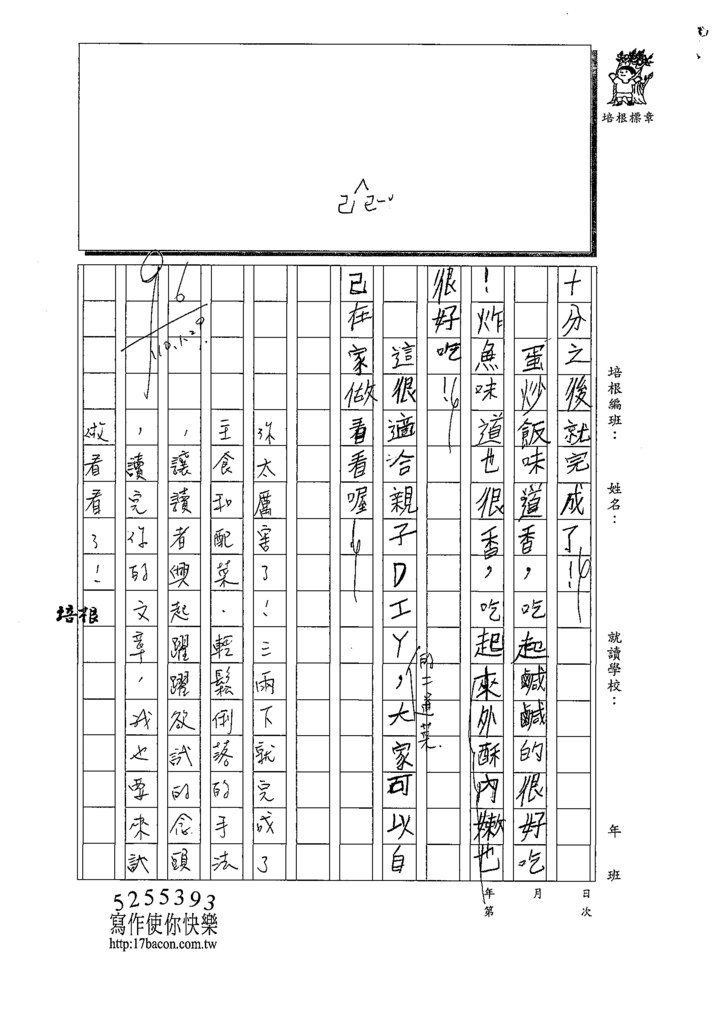 培根標章
培根編班：　姓名：　就讀學校：　年　班
日　月　年
次　第
十分之後就完成了！
蛋炒飯味道香，吃起鹹鹹的很好吃
！炸魚味道也很香，吃起來外酥內嫩也
很好吃！
這很適洽親子DIY，大家可以自
的二道菜
己在家做看看喔
你太厲害了！三兩下就完成了
主食和配菜．輕鬆俐落的手法
，讓讀者興起躍躍欲試的念頭
，讀完你的文章，我也要來試
做看看了！
96
110.1.29
培根
5255393
寫作使你快樂
http:17bacon.com.tw